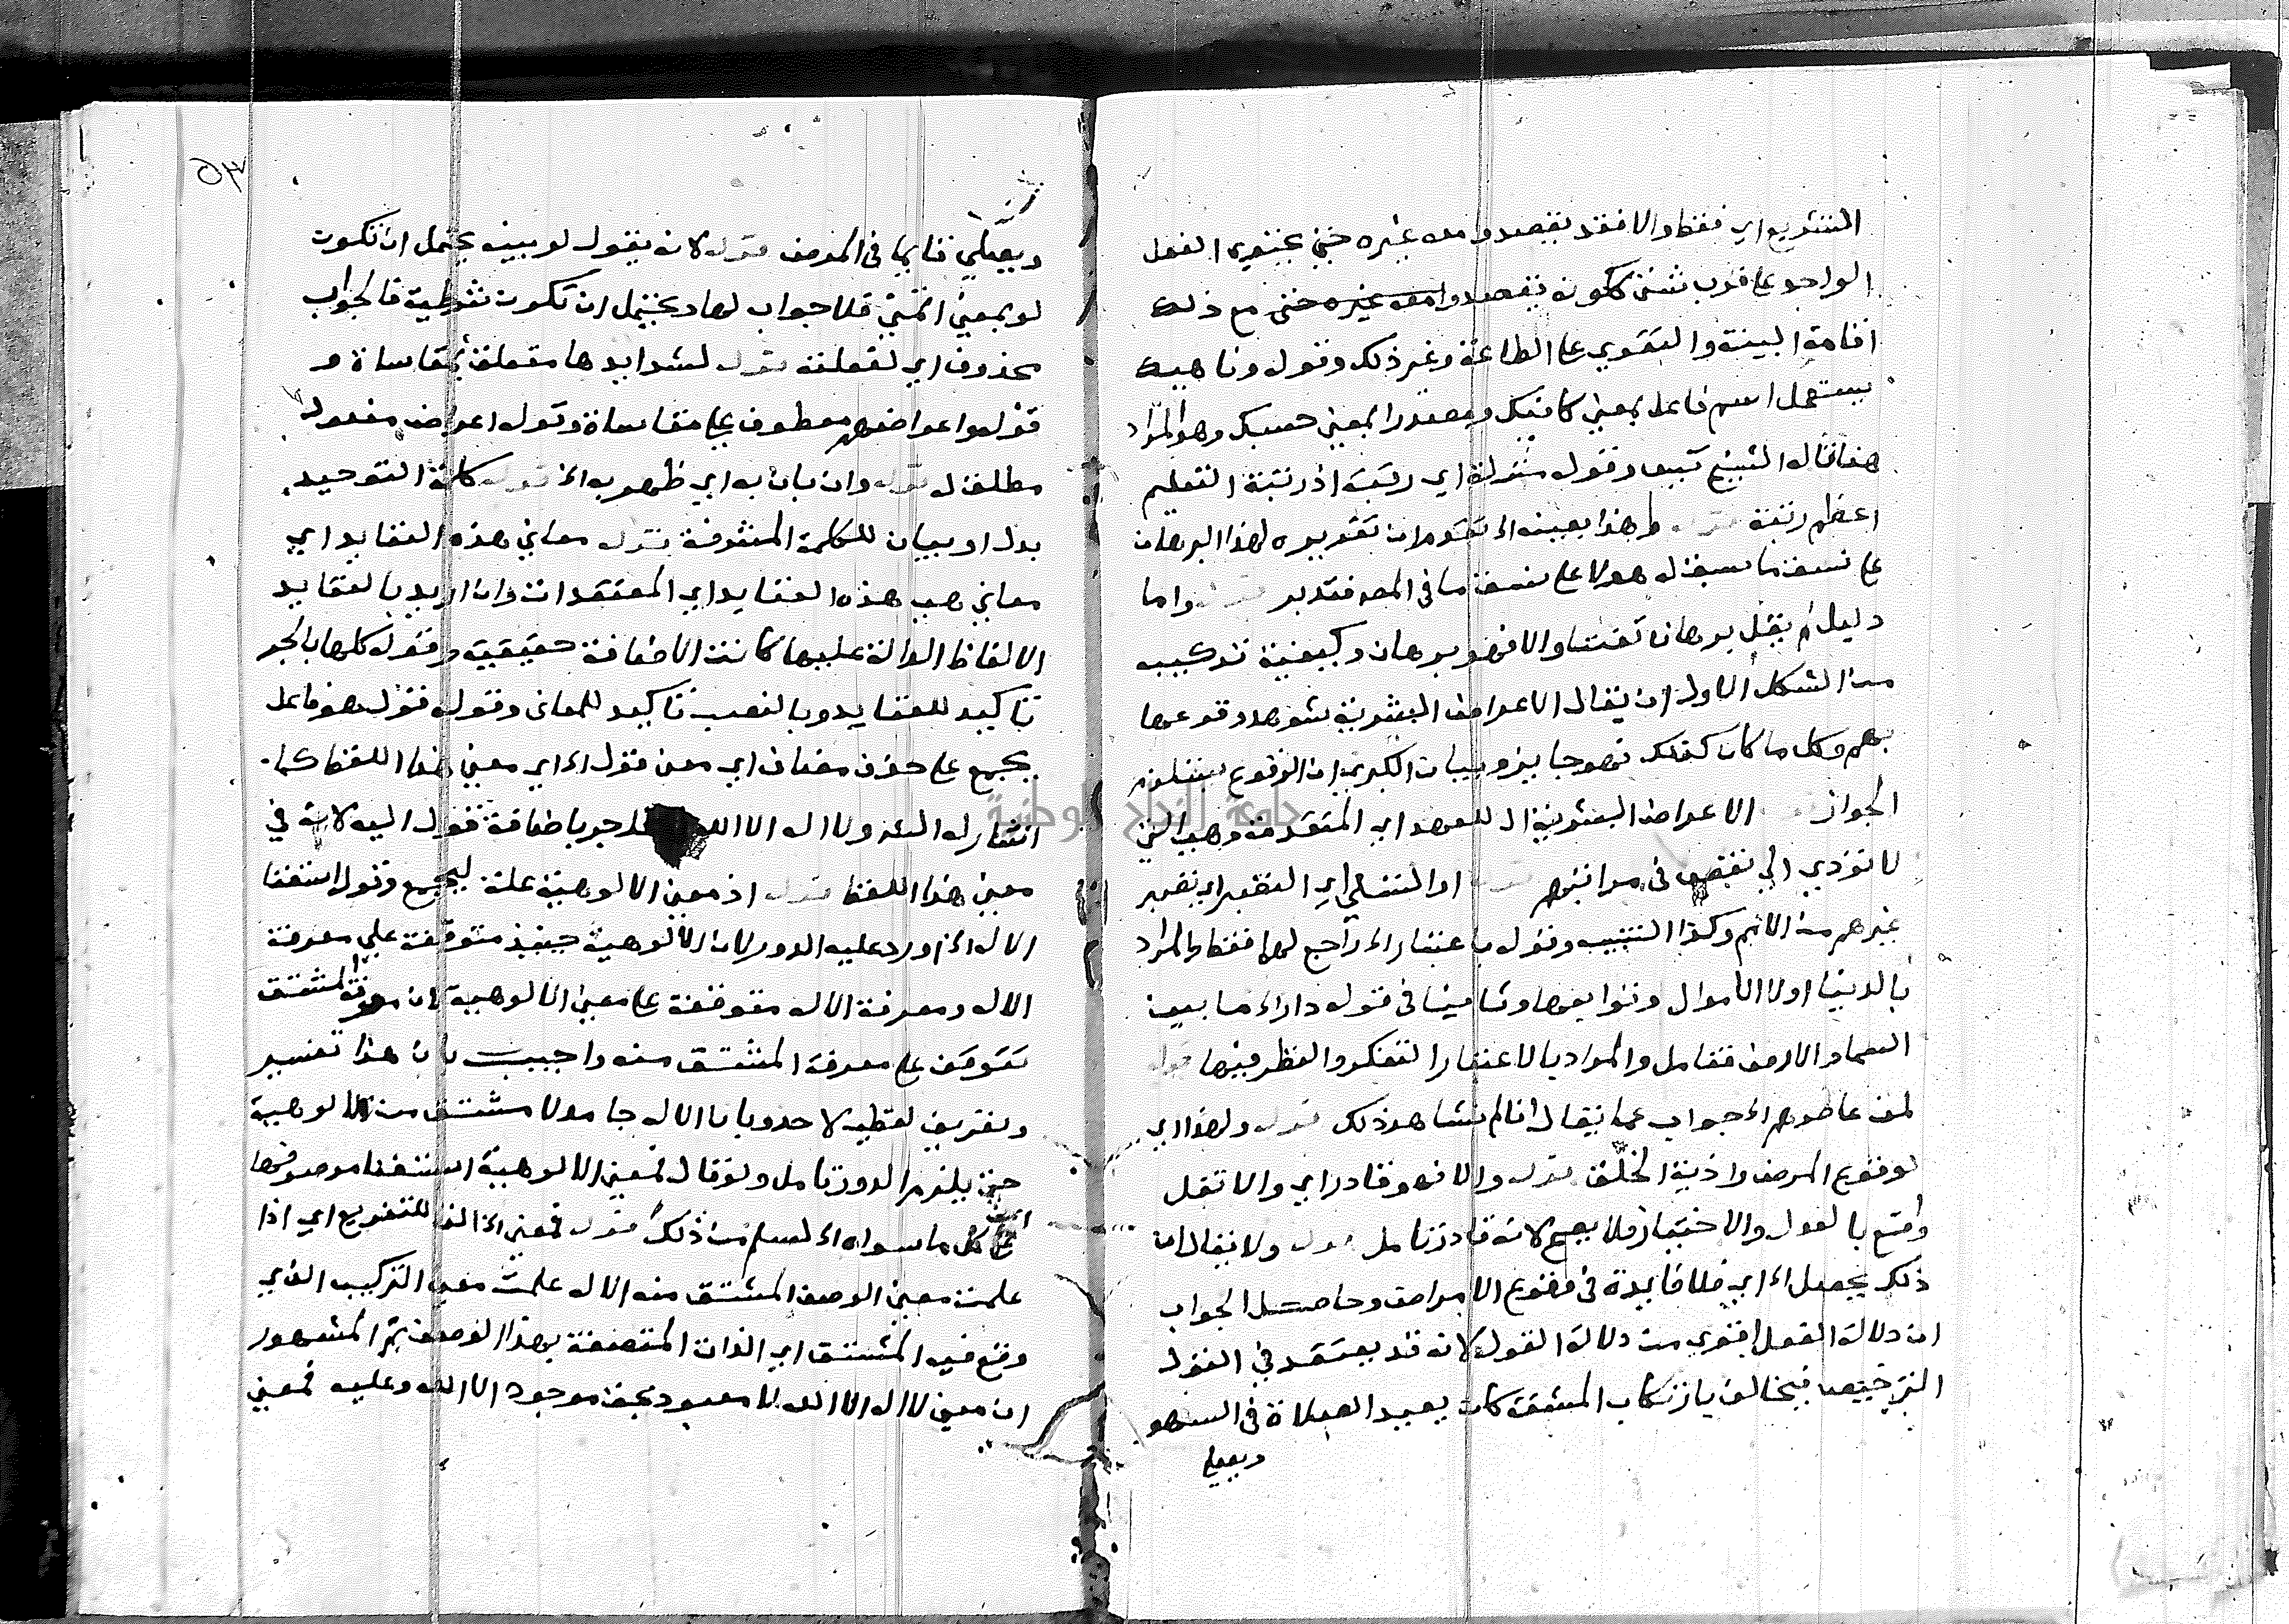 التشريع اي فقط والا فقد يقصدوا معه غيره حتى يحتوي الفعل
الواحد على قرب شتى ككونه يقصدوا معه غيره حتى مع ذلك
اقامة البينة والتقوي على الطاعة وغير ذلك وقوله وناهيك
يستعمل اسم فاعل بمعنى كافيك ومصدرا بمعنى حسبك وهو المراد
هنا قاله الشيخ وقوله منزلة اي رتبة اذ رتبة التعليم
اعظم رتبة قوله وهذا بعينه الخ تقدم ان تقريره لهذا البرهان
على نسق ما سبق له هو لا على نسق ما في المص فتدبر قوله واما
دليل لم يقل برهان تفننا والا فهو برهان وكيفية تركيبه
من الشكل الاول ان يقال الاعراض البشرية شوهد وقوعها
بهم وكل ما كان كذلك فهو جايز وبيان الكبرى ان الوقوع يستلزم
الجواز الاعراض البشرية ال للعهد اي المتقدمة وهي التي
لا تؤدي الى نقص في مراتبهم قوله او التسلي اي التصبر اي تصبر
غيرهم من الامم وكذا التنبيه وقوله باعتبار الخ راجع لهما فقط والمراد
بالدنيا اولا الاموال وتوابعها وثانيا في قوله دار الخ ما بين
السما والارض فتامل والمراد بالاعتبار التفكر والنظر فيها قوله
لمن عاصرهم الخ جواب عما يقال انا لم نشاهد ذلك قوله ولهذا اي
لوقوع المرض واذية الخلق قوله والا فهو قادر اي والا تقل
وقع بالفعل والاختيار فلا يصح لانه قادر تامل قوله ولا يقال ان
ذلك يحصل الخ اي فلا فايدة في وقوع الامراض وحاصل الجواب
ان دلالة الفعل اقوى من دلالة القول لانه قد يعتقد في القول
الترخيص فيخالف بارتكاب المشقة كان يعيد الصلاة في السهو
ويصلي
٥٣
ويصلي قايما في المرض قوله لانه يقول لو بينه يحتمل ان تكون
لو بمعنى التمني فلا جواب لها ويحتمل ان تكون شرطية فالجواب
محذوف اي لفعلته قوله لشدايدها متعلق بمقاساة و
قوله واعراضهم معطوف على مقاساة وقوله اعراض مفعول
مطلق له قوله وان بان به اي ظهر به الخ قوله كلمة التوحيد
بدل او بيان للكلمة المشرفة قوله معاني هذه العقايد اي
معاني هي هذه العقايد اي المعتقدات وان اريد بالعقايد
الالفاظ الدالة عليها كانت الاضافة حقيقية وقوله كلها بالجر
تاكيد للعقايد وبالنصب تاكيد للمعاني وقوله قول هو فاعل
يجمع على حذف مضاف اي معنى قول الخ اي معنى هذا اللفظ كما
اشار له الشر ولا اله الا الله جر باضافة قول اليه لانه في
معنى هذا اللفظ قوله اذ معنى الالوهية علة ليجمع وقوله استغنا
الاله الخ اورد عليه الدور لان الالوهية حينيذ متوقفة على معرفة
الاله ومعرفة الاله متوقفة على معنى الالوهية لان معرفة المشتق
تتوقف على معرفة المشتق منه واجيب بان هذا تفسير
وتعريف لفظي لا حد وبان الاله جامد لا مشتق من الالوهية
حتى يلزم الدور تامل ولو قال فمعنى الالوهية استغنا موصوفها
عن كل ما سواه الخ لسلم من ذلك قوله فمعنى الخ الفا للتفريع اي اذا
علمت معنى الوصف المشتق منه الاله علمت معنى التركيب الذي
وقع فيه المشتق اي الذات المتصفة بهذا الوصف ثم المشهور
ان معنى لا اله الا الله لا معبود بحق موجود الا الله وعليه فمعنى